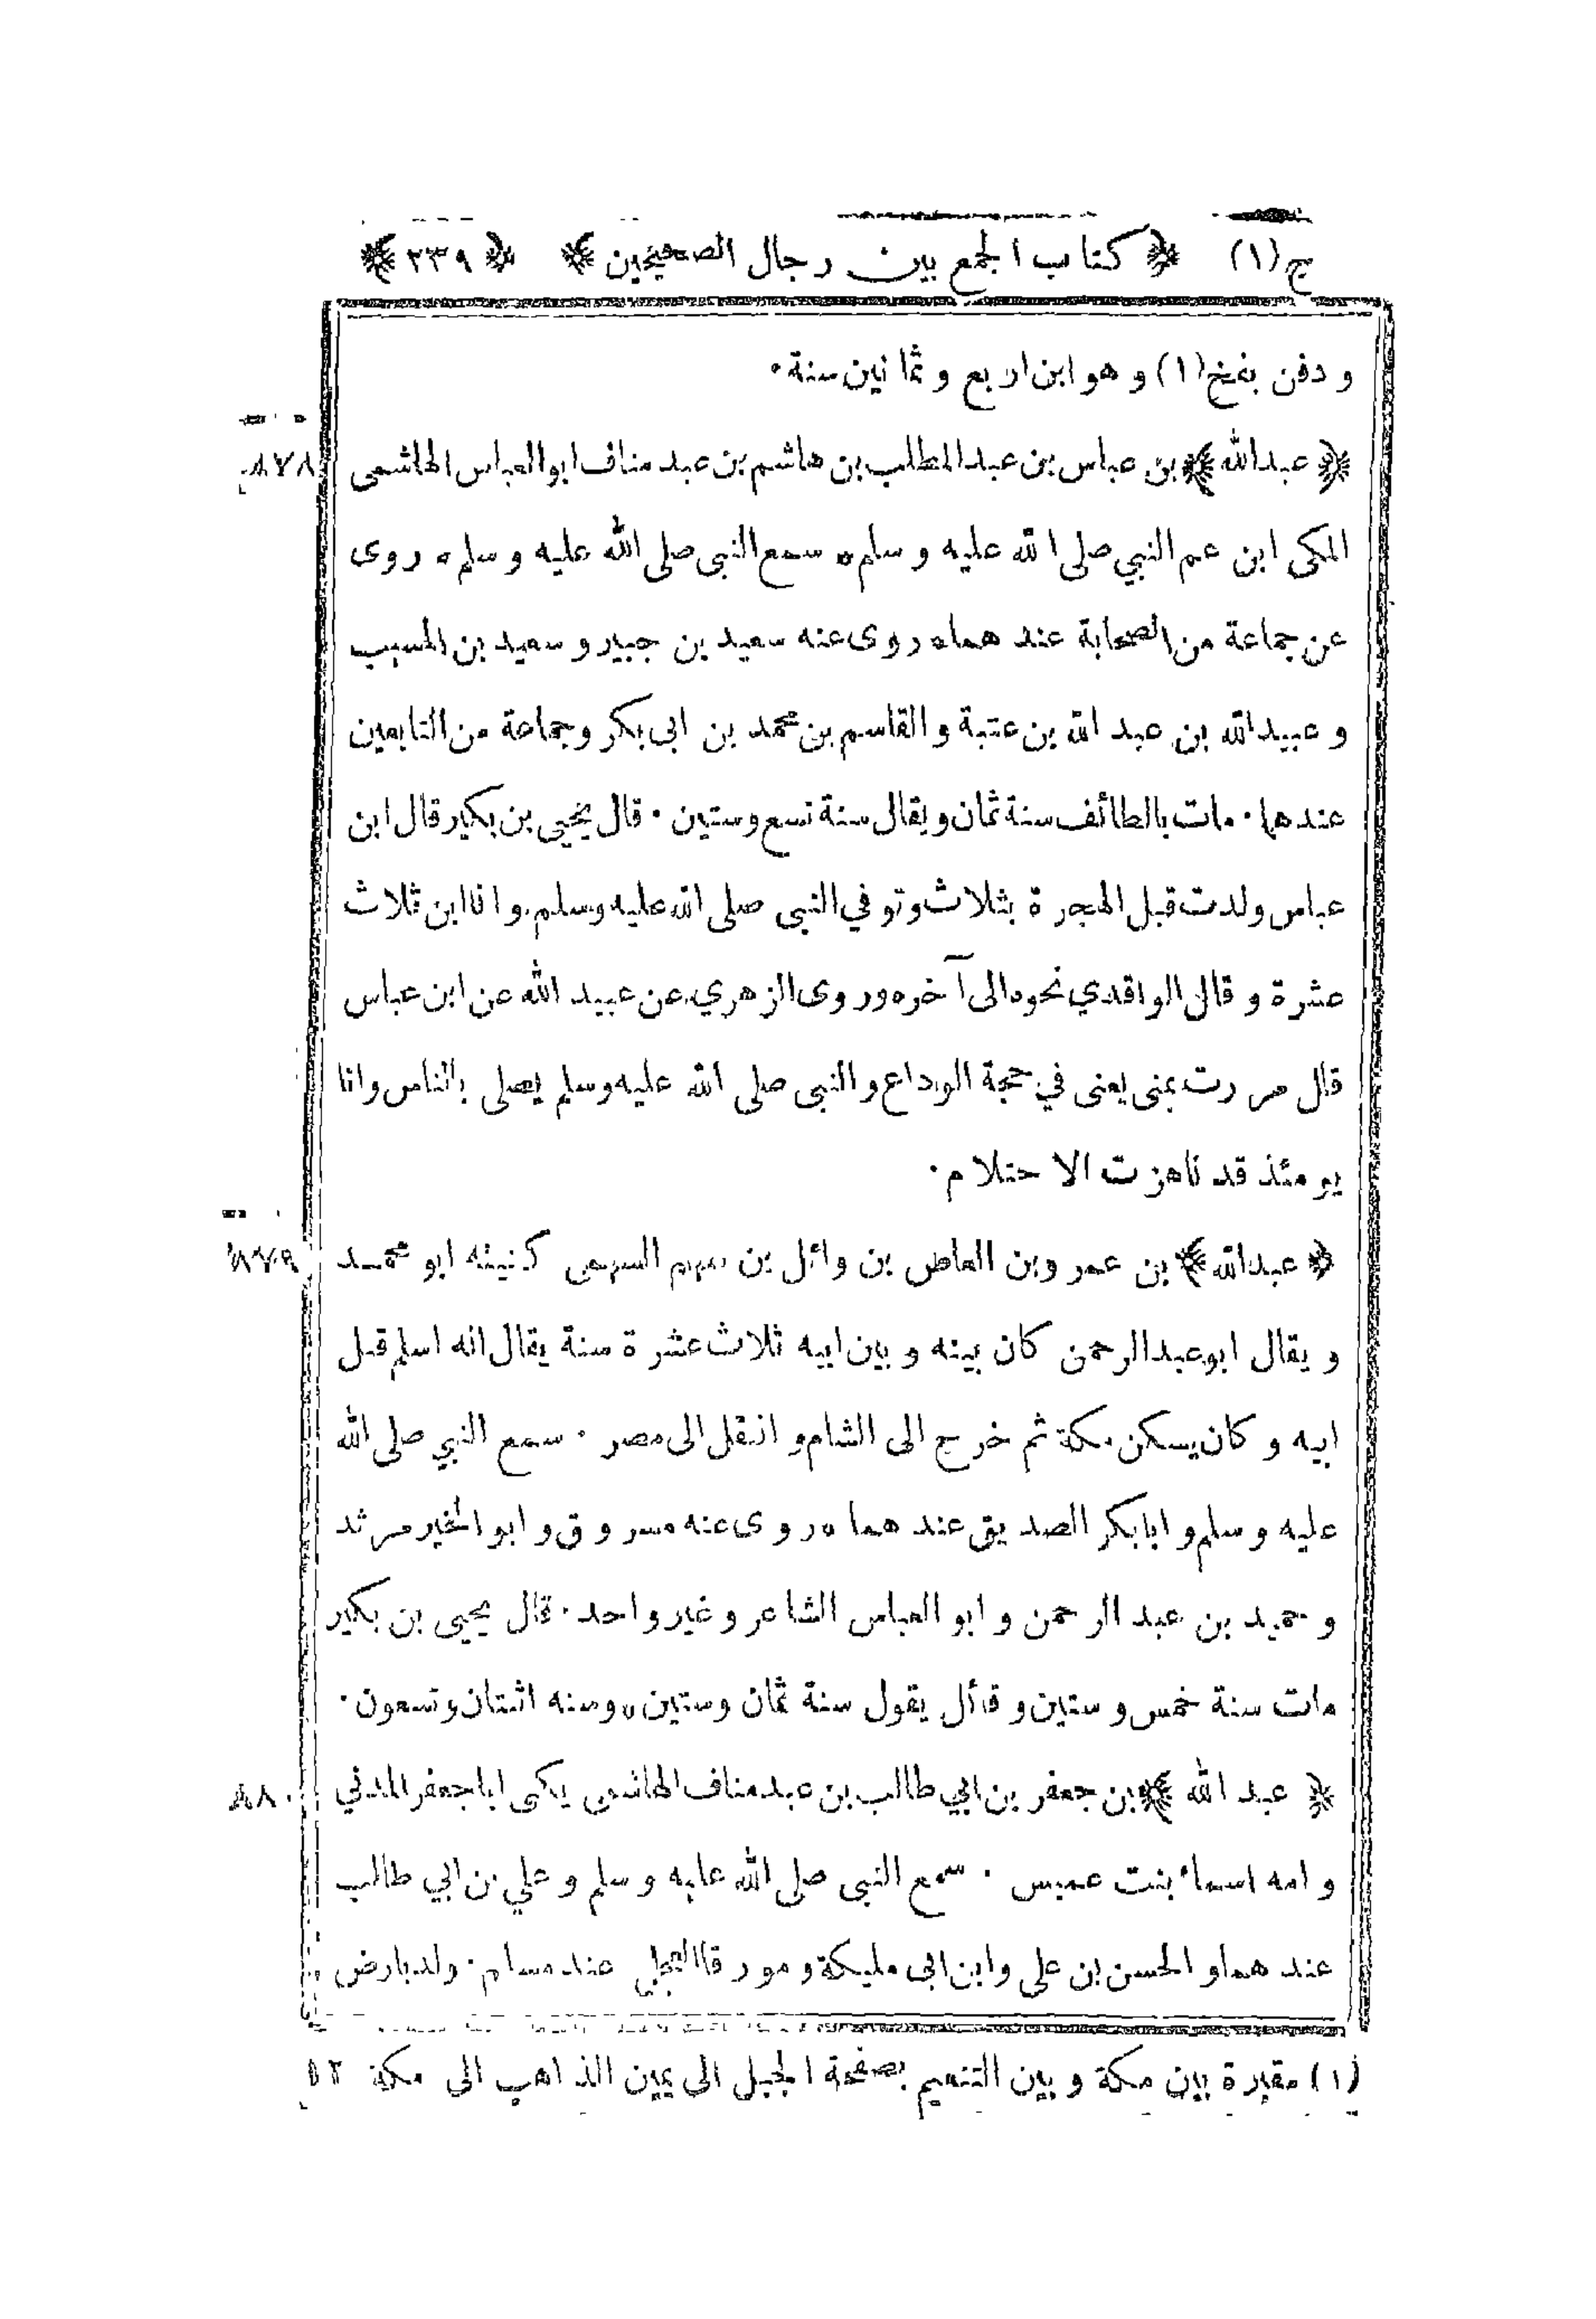 ج (١) ﴿ كتاب الجمع بين رجال الصحيحين ﴾ ﴿ ٢٣٩ ﴾
و دفن بفخ (١) و هو ابن اربع و ثمانين سنة ·
٨٧٨ ﴿ عبدالله ﴾ بن عباس بن عبدالمطلب بن هاشم بن عبد مناف ابوالعباس الهاشمى
المكى ابن عم النبي صلى الله عليه و سلم ٥ سمع النبى صلى الله عليه و سلم ٥ روى
عن جماعة من الصحابة عند هما ٥ روى عنه سعيد بن جبير و سعيد بن المسيب
و عبيدالله بن عبد الله بن عتبة و القاسم بن محمد بن ابى بكر و جماعة من التابعين
عندهما · مات بالطائف سنة ثمان و يقال سنة تسع و ستين · قال يحيى بن بكير قال ابن
عباس ولدت قبل الهجرة بثلاث و توفي النبى صلى الله عليه و سلم و انا ابن ثلاث
عشرة و قال الواقدي نحوه الى آخره و روى الزهري عن عبيد الله عن ابن عباس
قال مررت بمنى يعنى في حجة الوداع و النبى صلى الله عليه و سلم يصلى بالناس و انا
يومئذ قد ناهزت الاحتلام ·
٨٧٩ ﴿ عبدالله ﴾ بن عمر و بن العاص بن وائل بن سهم السهمى كنيته ابو محمد
و يقال ابو عبدالرحمن كان بينه و بين ابيه ثلاث عشرة سنة يقال انه اسلم قبل
ابيه و كان يسكن مكة ثم خرج الى الشام و انتقل الى مصر · سمع النبي صلى الله
عليه و سلم و ابا بكر الصديق عند هما ٥ روى عنه مسروق و ابو الخير مرثد
و حميد بن عبد الرحمن و ابو العباس الشاعر و غير واحد · قال يحيى بن بكير
مات سنة خمس و ستين و قائل يقول سنة ثمان و ستين ٥ و سنه اثنتان و تسعون ·
٨٨٠ ﴿ عبد الله ﴾ بن جعفر بن ابي طالب بن عبد مناف الهاشمى يكنى ابا جعفر المدني
و امه اسماء بنت عميس · سمع النبى صلى الله عليه و سلم و علي بن ابي طالب
عند هما و الحسن بن على و ابن ابى مليكة و مورقا العجلي عند مسلم · ولد بارض
(١) مقبرة بين مكة و بين التنعيم بصفحة الجبل الى يمين الذاهب الى مكة ١٢